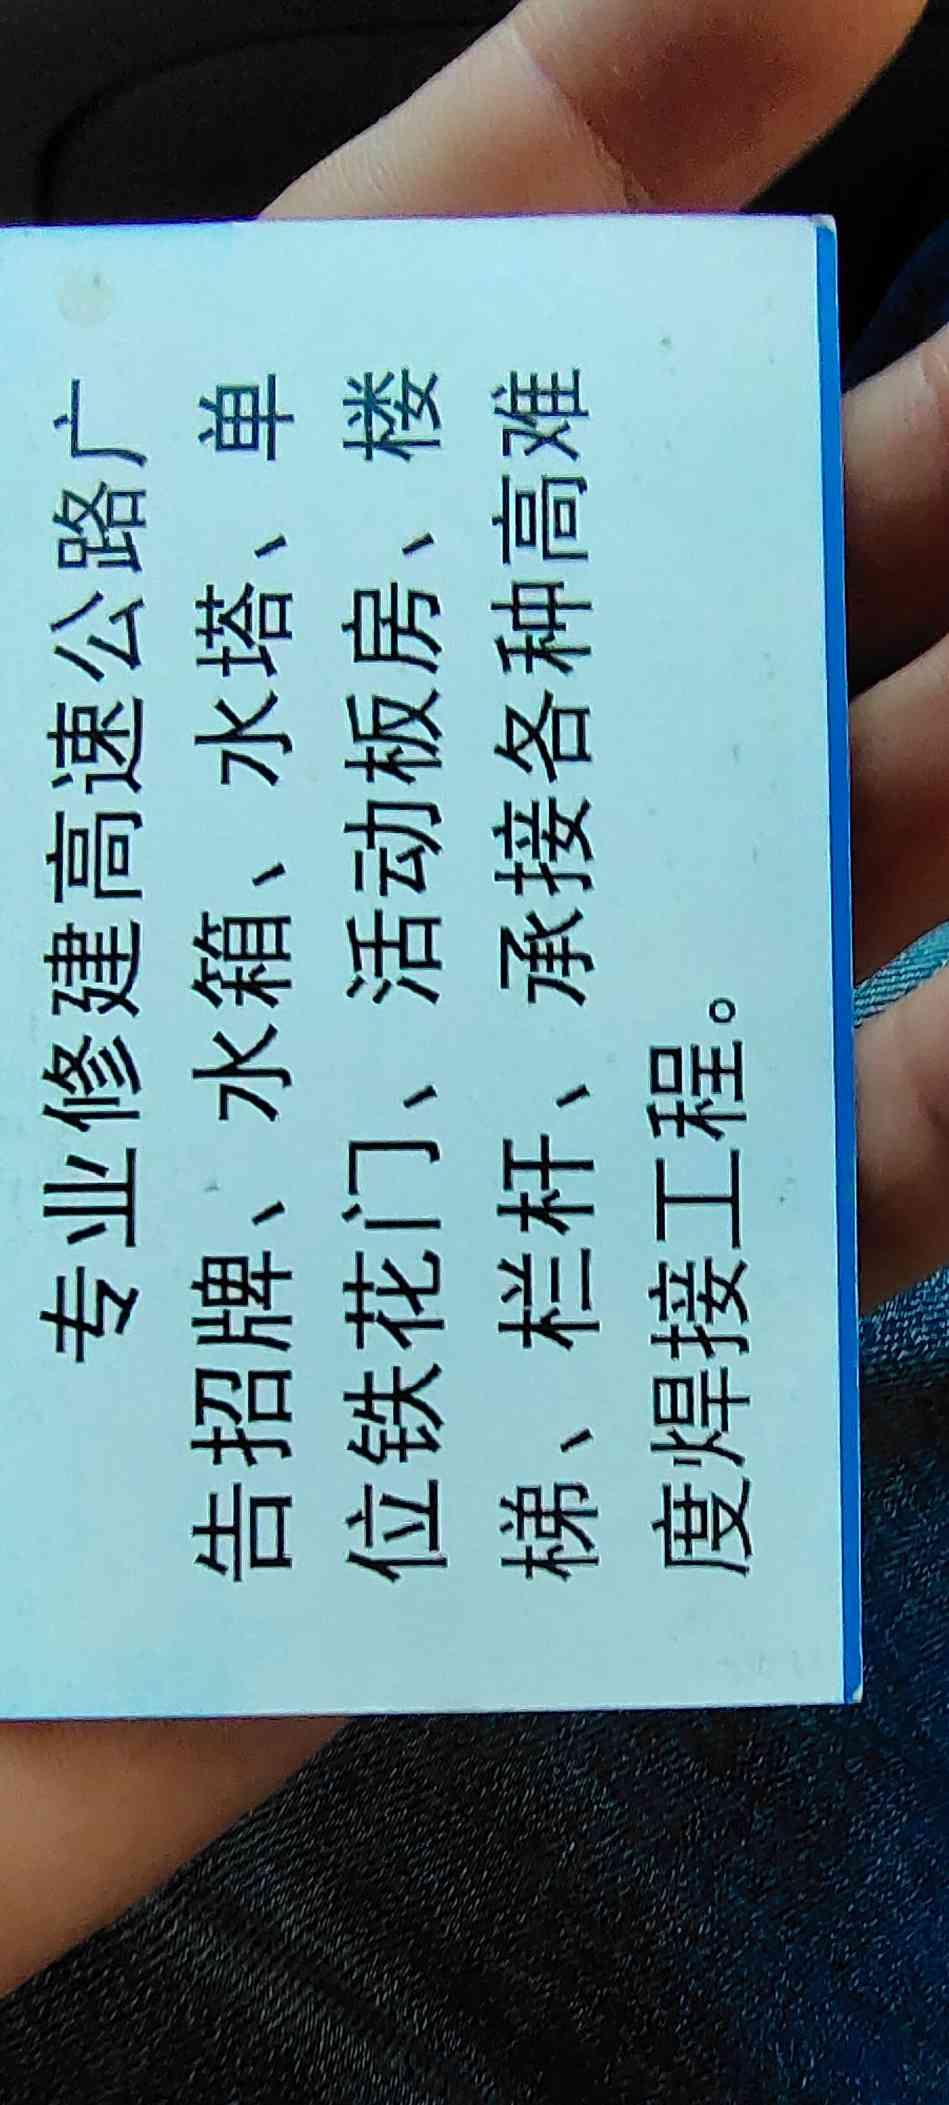 专业修建高速公路广
告招牌、水箱、水塔、单
位铁花门、活动板房、楼
梯、栏杆、承接各种高难
度焊接工程。